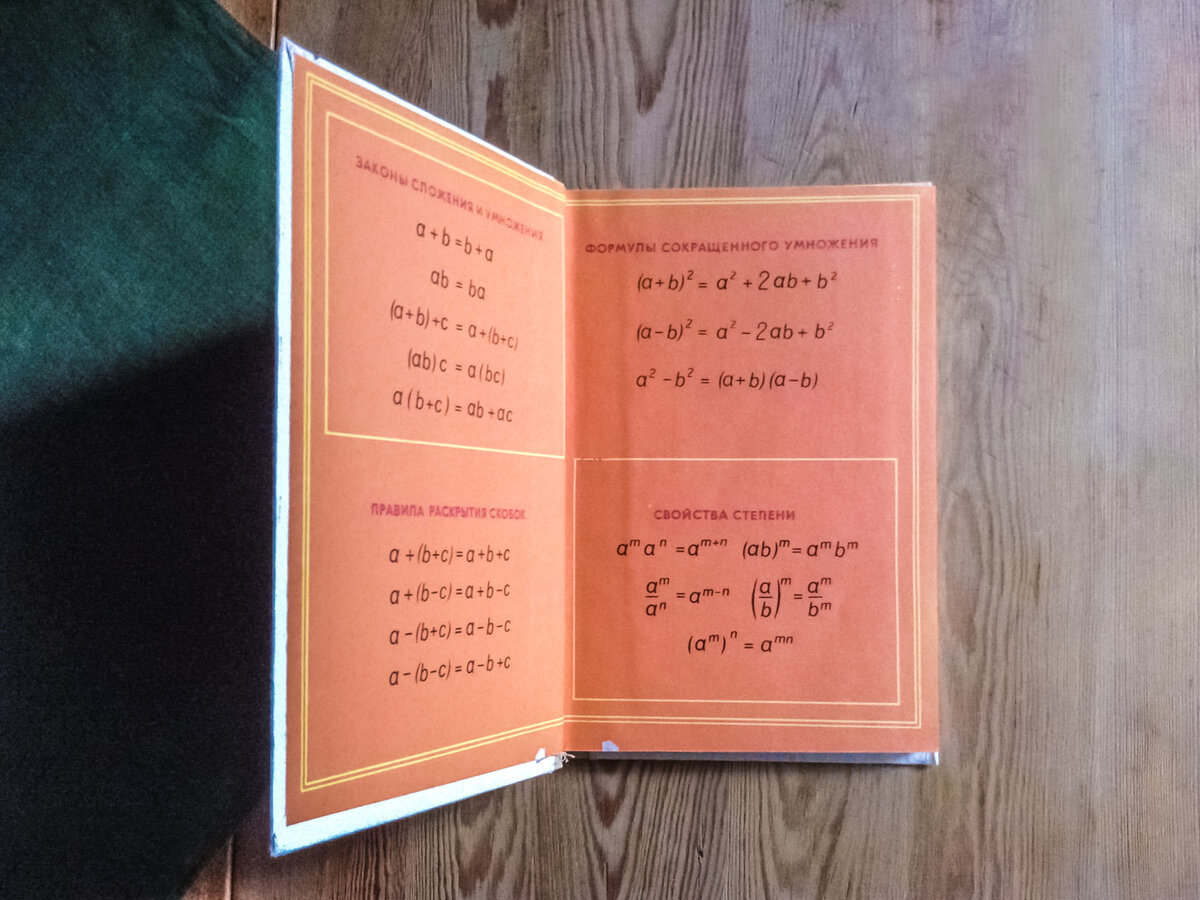 ЗАКОНЫ СЛОЖЕНИЯ И УМНОЖЕНИЯ
a + b = b + a
ab = ba
(a+b)+c = a+(b+c)
(ab)c = a(bc)
a(b+c) = ab + ac
ПРАВИЛА РАСКРЫТИЯ СКОБОК
a + (b+c) = a+b+c
a + (b−c) = a+b−c
a − (b+c) = a−b−c
a − (b−c) = a−b+c
ФОРМУЛЫ СОКРАЩЕННОГО УМНОЖЕНИЯ
(a+b)² = a² + 2ab + b²
(a−b)² = a² − 2ab + b²
a² − b² = (a+b)(a−b)
СВОЙСТВА СТЕПЕНИ
aᵐaⁿ = aᵐ⁺ⁿ (ab)ᵐ = aᵐbᵐ
aᵐ/aⁿ = aᵐ⁻ⁿ (a/b)ᵐ = aᵐ/bᵐ
(aᵐ)ⁿ = aᵐⁿ